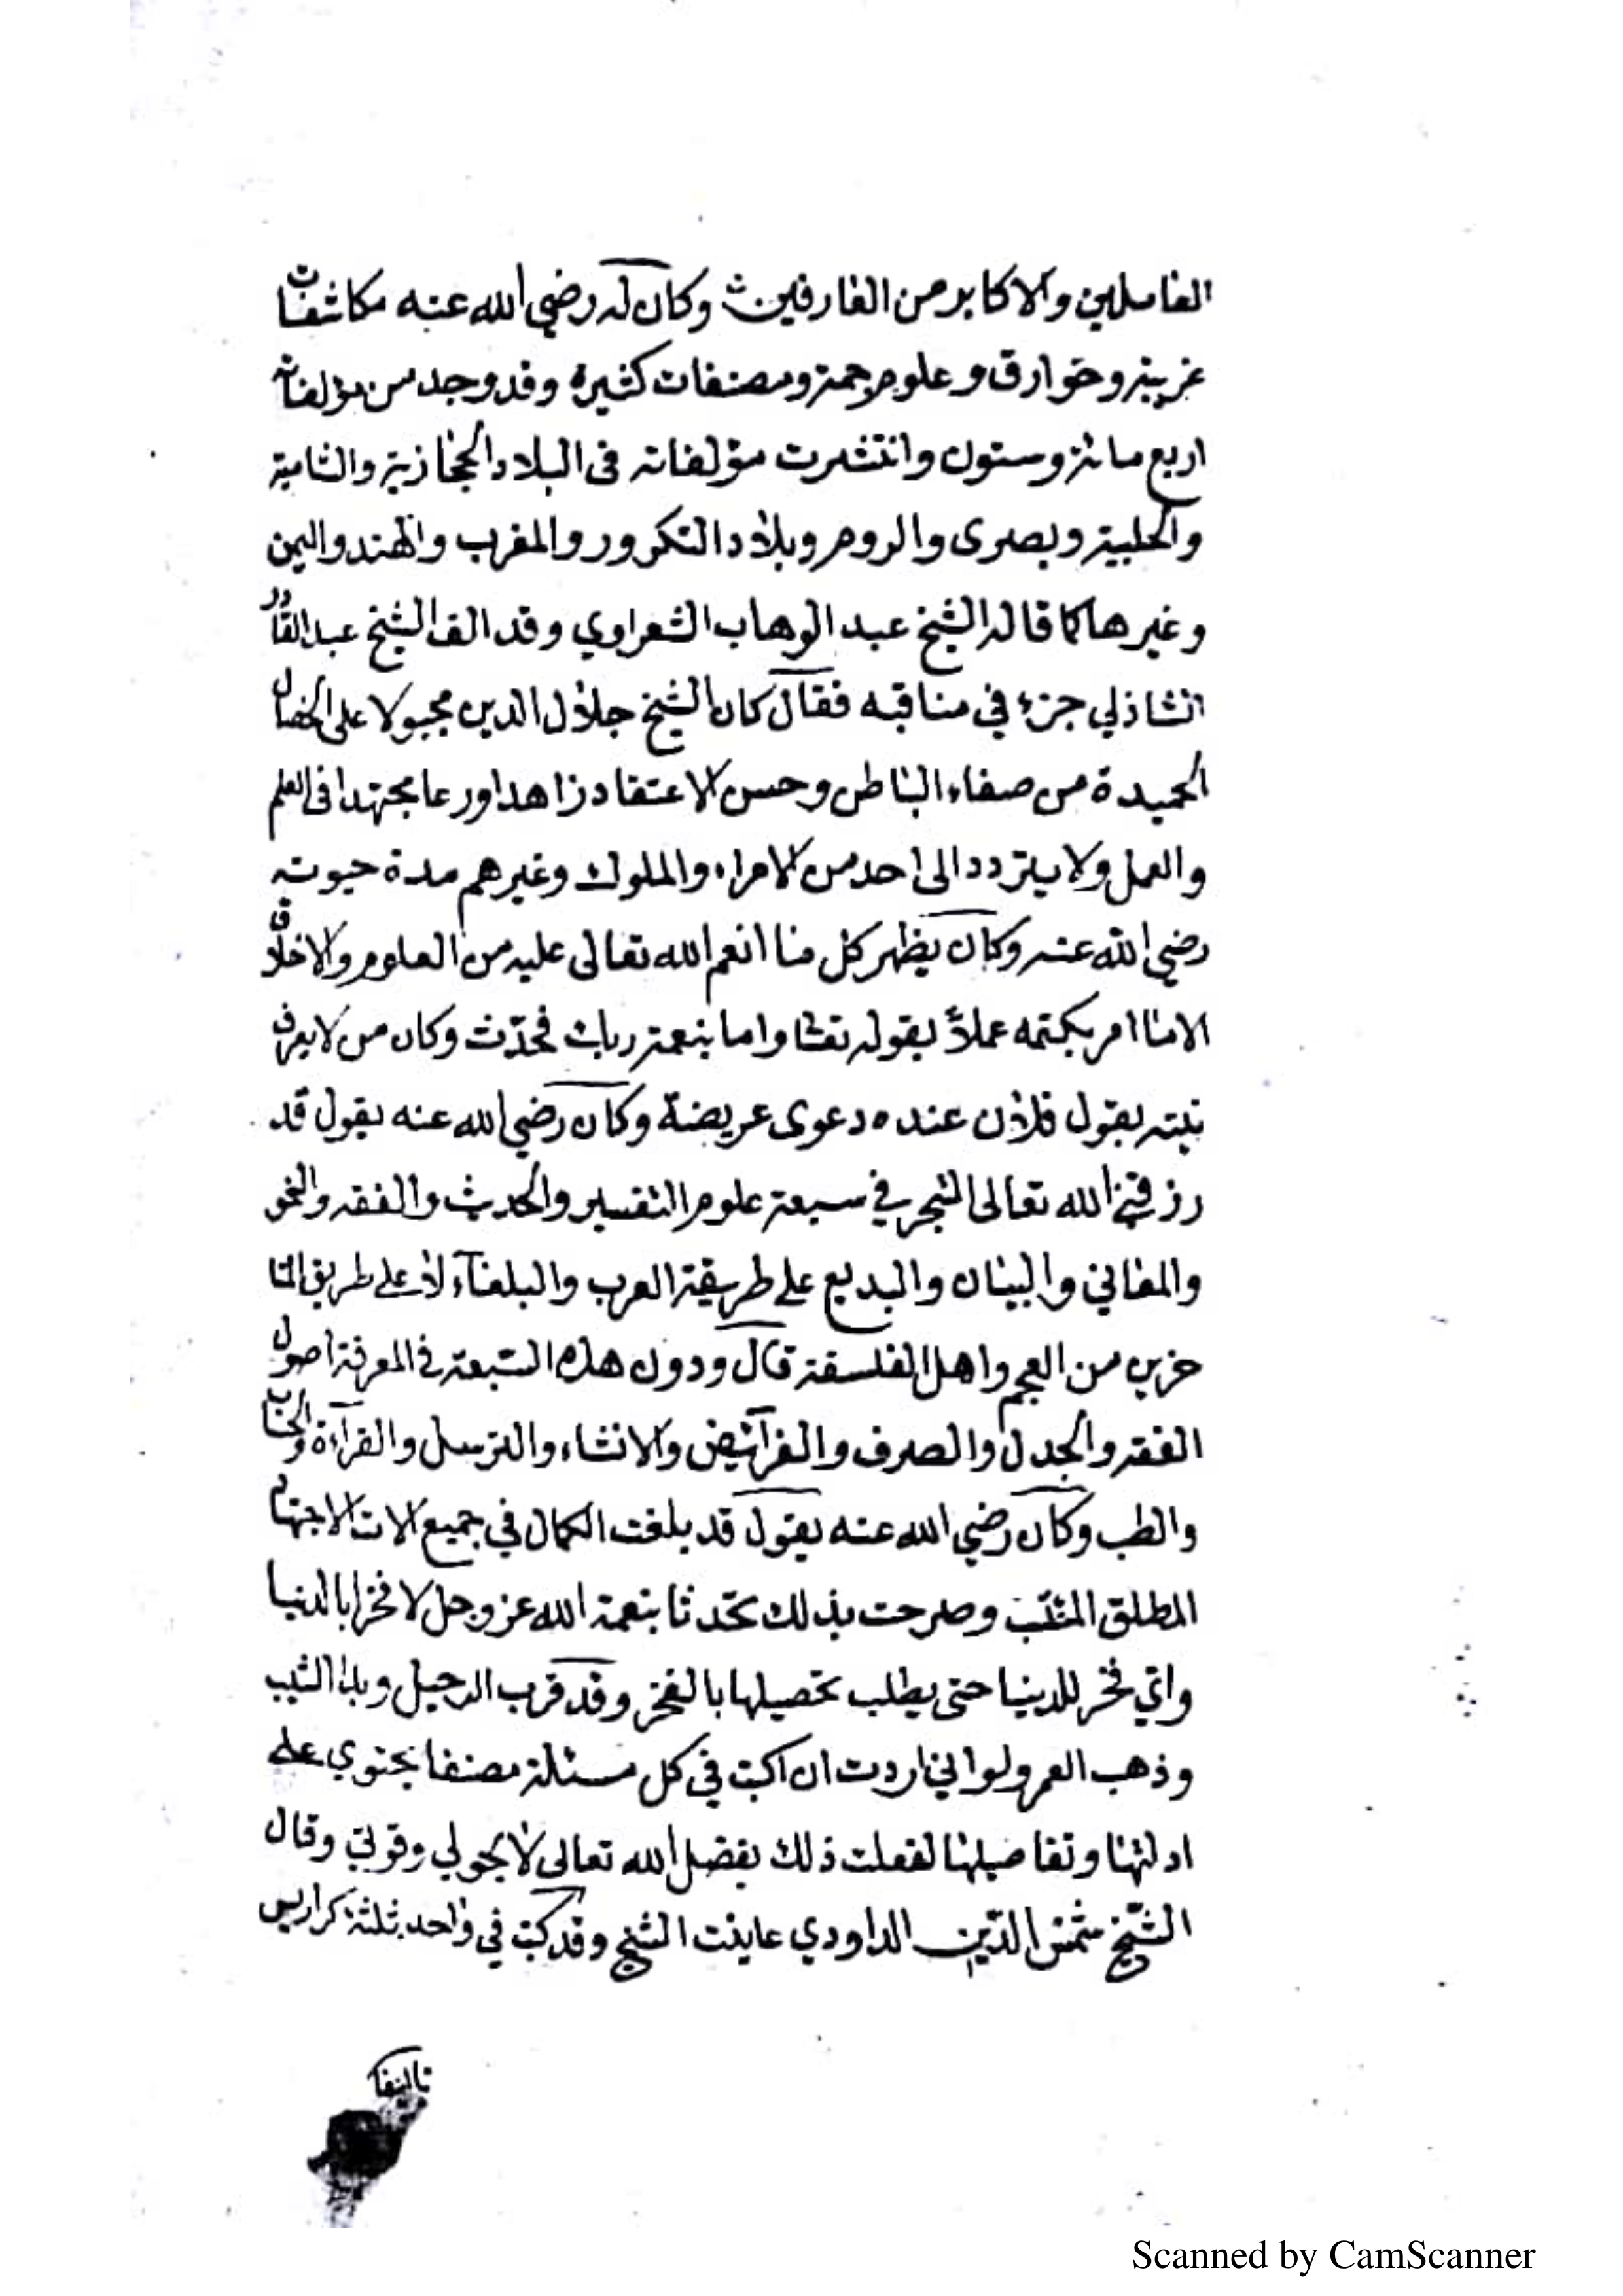 العاملين والاكابر من العارفين وكان له رضي الله عنه مكاشفات
غريبة وخوارق وعلوم جمة ومصنفات كثيرة وقد وجد من مؤلفاته
اربع مائة وستون وانتشرت مؤلفاته فى البلاد الحجازية والشامية
والحلبية وبصرى والروم وبلاد التكرور والمغرب والهند واليمن
وغيرها كما قاله الشيخ عبد الوهاب الشعراوي وقد الف الشيخ عبد القادر
الشاذلي جزء في مناقبه فقال كان الشيخ جلال الدين مجبولا على الخصال
الحميدة من صفاء الباطن وحسن الاعتقاد زاهدا ورعا مجتهدا فى العلم
والعمل ولا يتردد الى احد من الامراء والملوك وغيرهم مدة حيوته
رضي الله عنه وكان يظهر كل ما انعم الله تعالى عليه من العلوم والاخلاق
الا ما امر بكتمه عملاً بقوله تعالى واما بنعمة ربك فحدّث وكان من لا يعرف
نيته يقول فلان عنده دعوى عريضة وكان رضي الله عنه يقول قد
رزقني الله تعالى التبحر في سبعة علوم التفسير والحديث والفقه والنحو
والمعاني والبيان والبديع على طريقة العرب والبلغآء لا على طريق المتا
خرين من العجم واهل الفلسفة قال ودون هذه السّبعة في المعرفة اصول
الفقه والجدل والصرف والفرآئض والانشاء والترسل والقرآءة والحساب
والطب وكان رضي الله عنه يقول قد بلغت الكمال في جميع الات الاجتهاد
المطلق المنتسب وصرحت بذلك تحدثا بنعمة الله عز وجل لا فخرا بالدنيا
واي فخر للدنيا حتى يطلب تحصيلها بالفخر وقد قرب الرحيل وبدا الشيب
وذهب العمر ولو اني اردت ان اكتب في كل مسئلة مصنفا يحتوي على
ادلتها وتفاصيلها لفعلت ذلك بفضل الله تعالى لا بحولي وقوتي وقال
الشّيخ شمس الدّين الداودي عاينت الشيخ وقد كتب في واحد ثلثة كراريس
تاليفا
Scanned by CamScanner